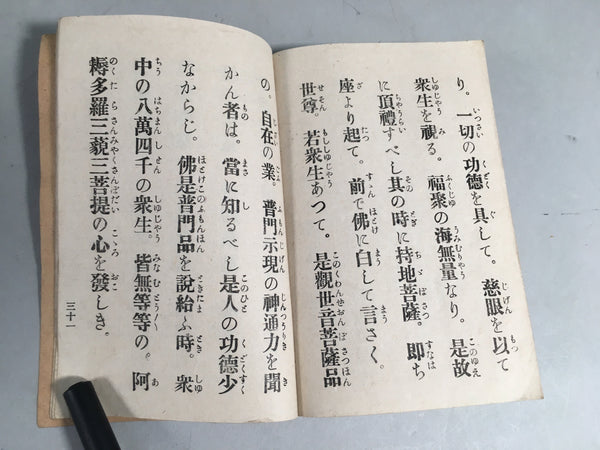 り。一切の功德を具して。慈眼を以て
衆生を視る。福聚の海無量なり。是故
に頂禮すべし其の時に持地菩薩。即ち
座より起て。前で佛に白して言さく。
世尊。若衆生あつて。是觀世音菩薩品
の。自在の業。普門示現の神通力を聞
かん者は。當に知るべし是人の功德少
なからじ。佛是普門品を說給ふ時。衆
中の八萬四千の衆生。皆無等等の。阿
耨多羅三藐三菩提の心を發しき。
三十一